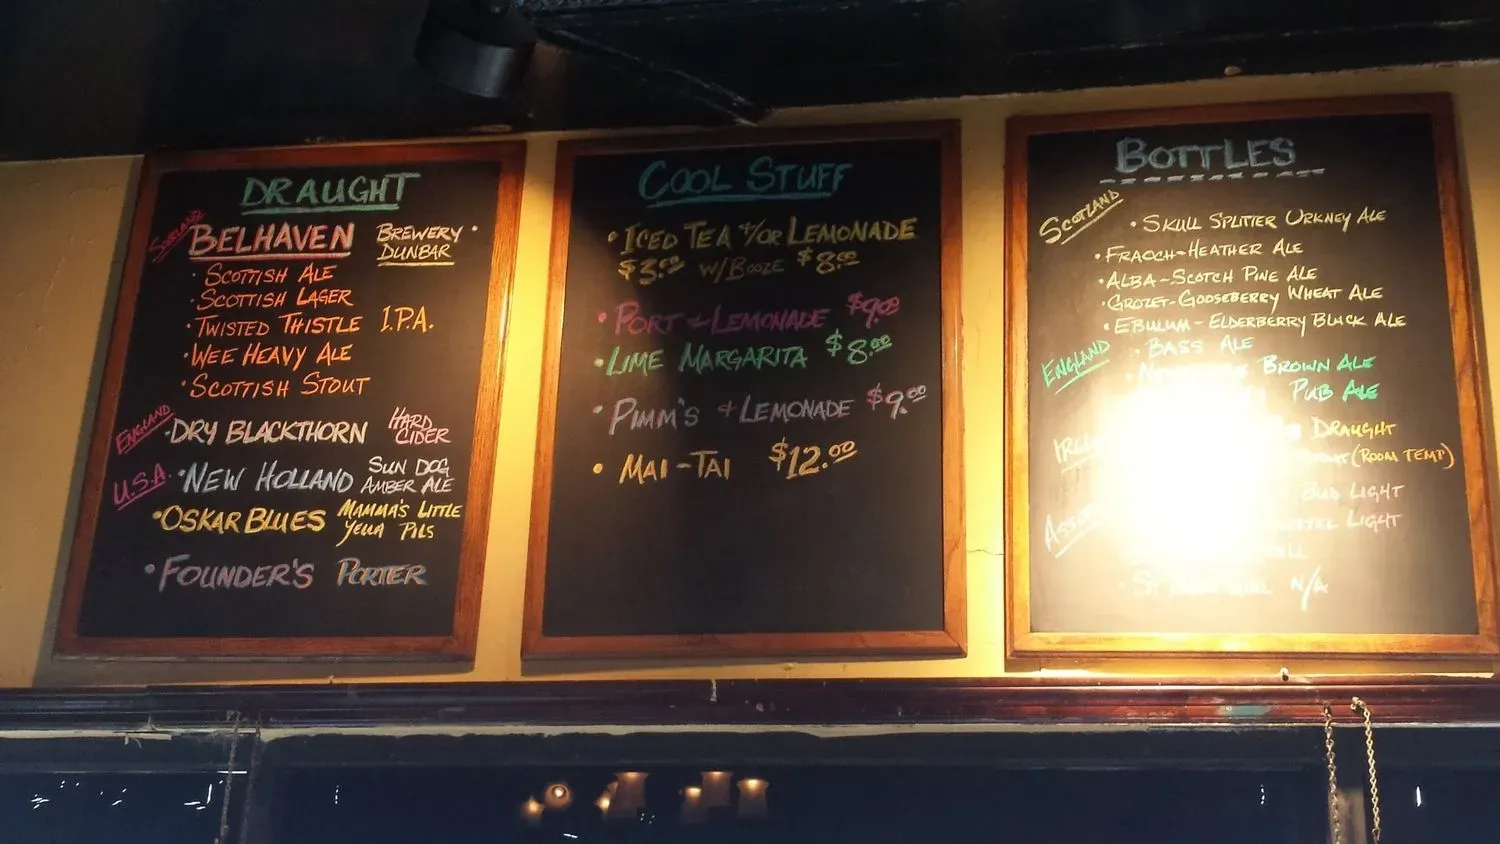 DRAUGHT
SCOTLAND
BELHAVEN BREWERY DUNBAR
· SCOTTISH ALE
· SCOTTISH LAGER
· TWISTED THISTLE I.P.A.
· WEE HEAVY ALE
· SCOTTISH STOUT
ENGLAND
· DRY BLACKTHORN HARD CIDER
U.S.A
· NEW HOLLAND SUN DOG AMBER ALE
· OSKAR BLUES MAMMA'S LITTLE YELLA PILS
· FOUNDER'S PORTER
COOL STUFF
· ICED TEA +/OR LEMONADE
$3.00 W/BOOZE $8.00
· PORT + LEMONADE $9.00
· LIME MARGARITA $8.00
· PIMM'S + LEMONADE $9.00
· MAI-TAI $12.00
BOTTLES
SCOTLAND
· SKULL SPLITTER ORKNEY ALE
· FRAOCH-HEATHER ALE
· ALBA-SCOTCH PINE ALE
· GROZET-GOOSEBERRY WHEAT ALE
· EBULUM-ELDERBERRY BLACK ALE
ENGLAND
· BASS ALE
BROWN ALE
PUB ALE
DRAUGHT
(ROOM TEMP)
BUD LIGHT
LIGHT
N/A